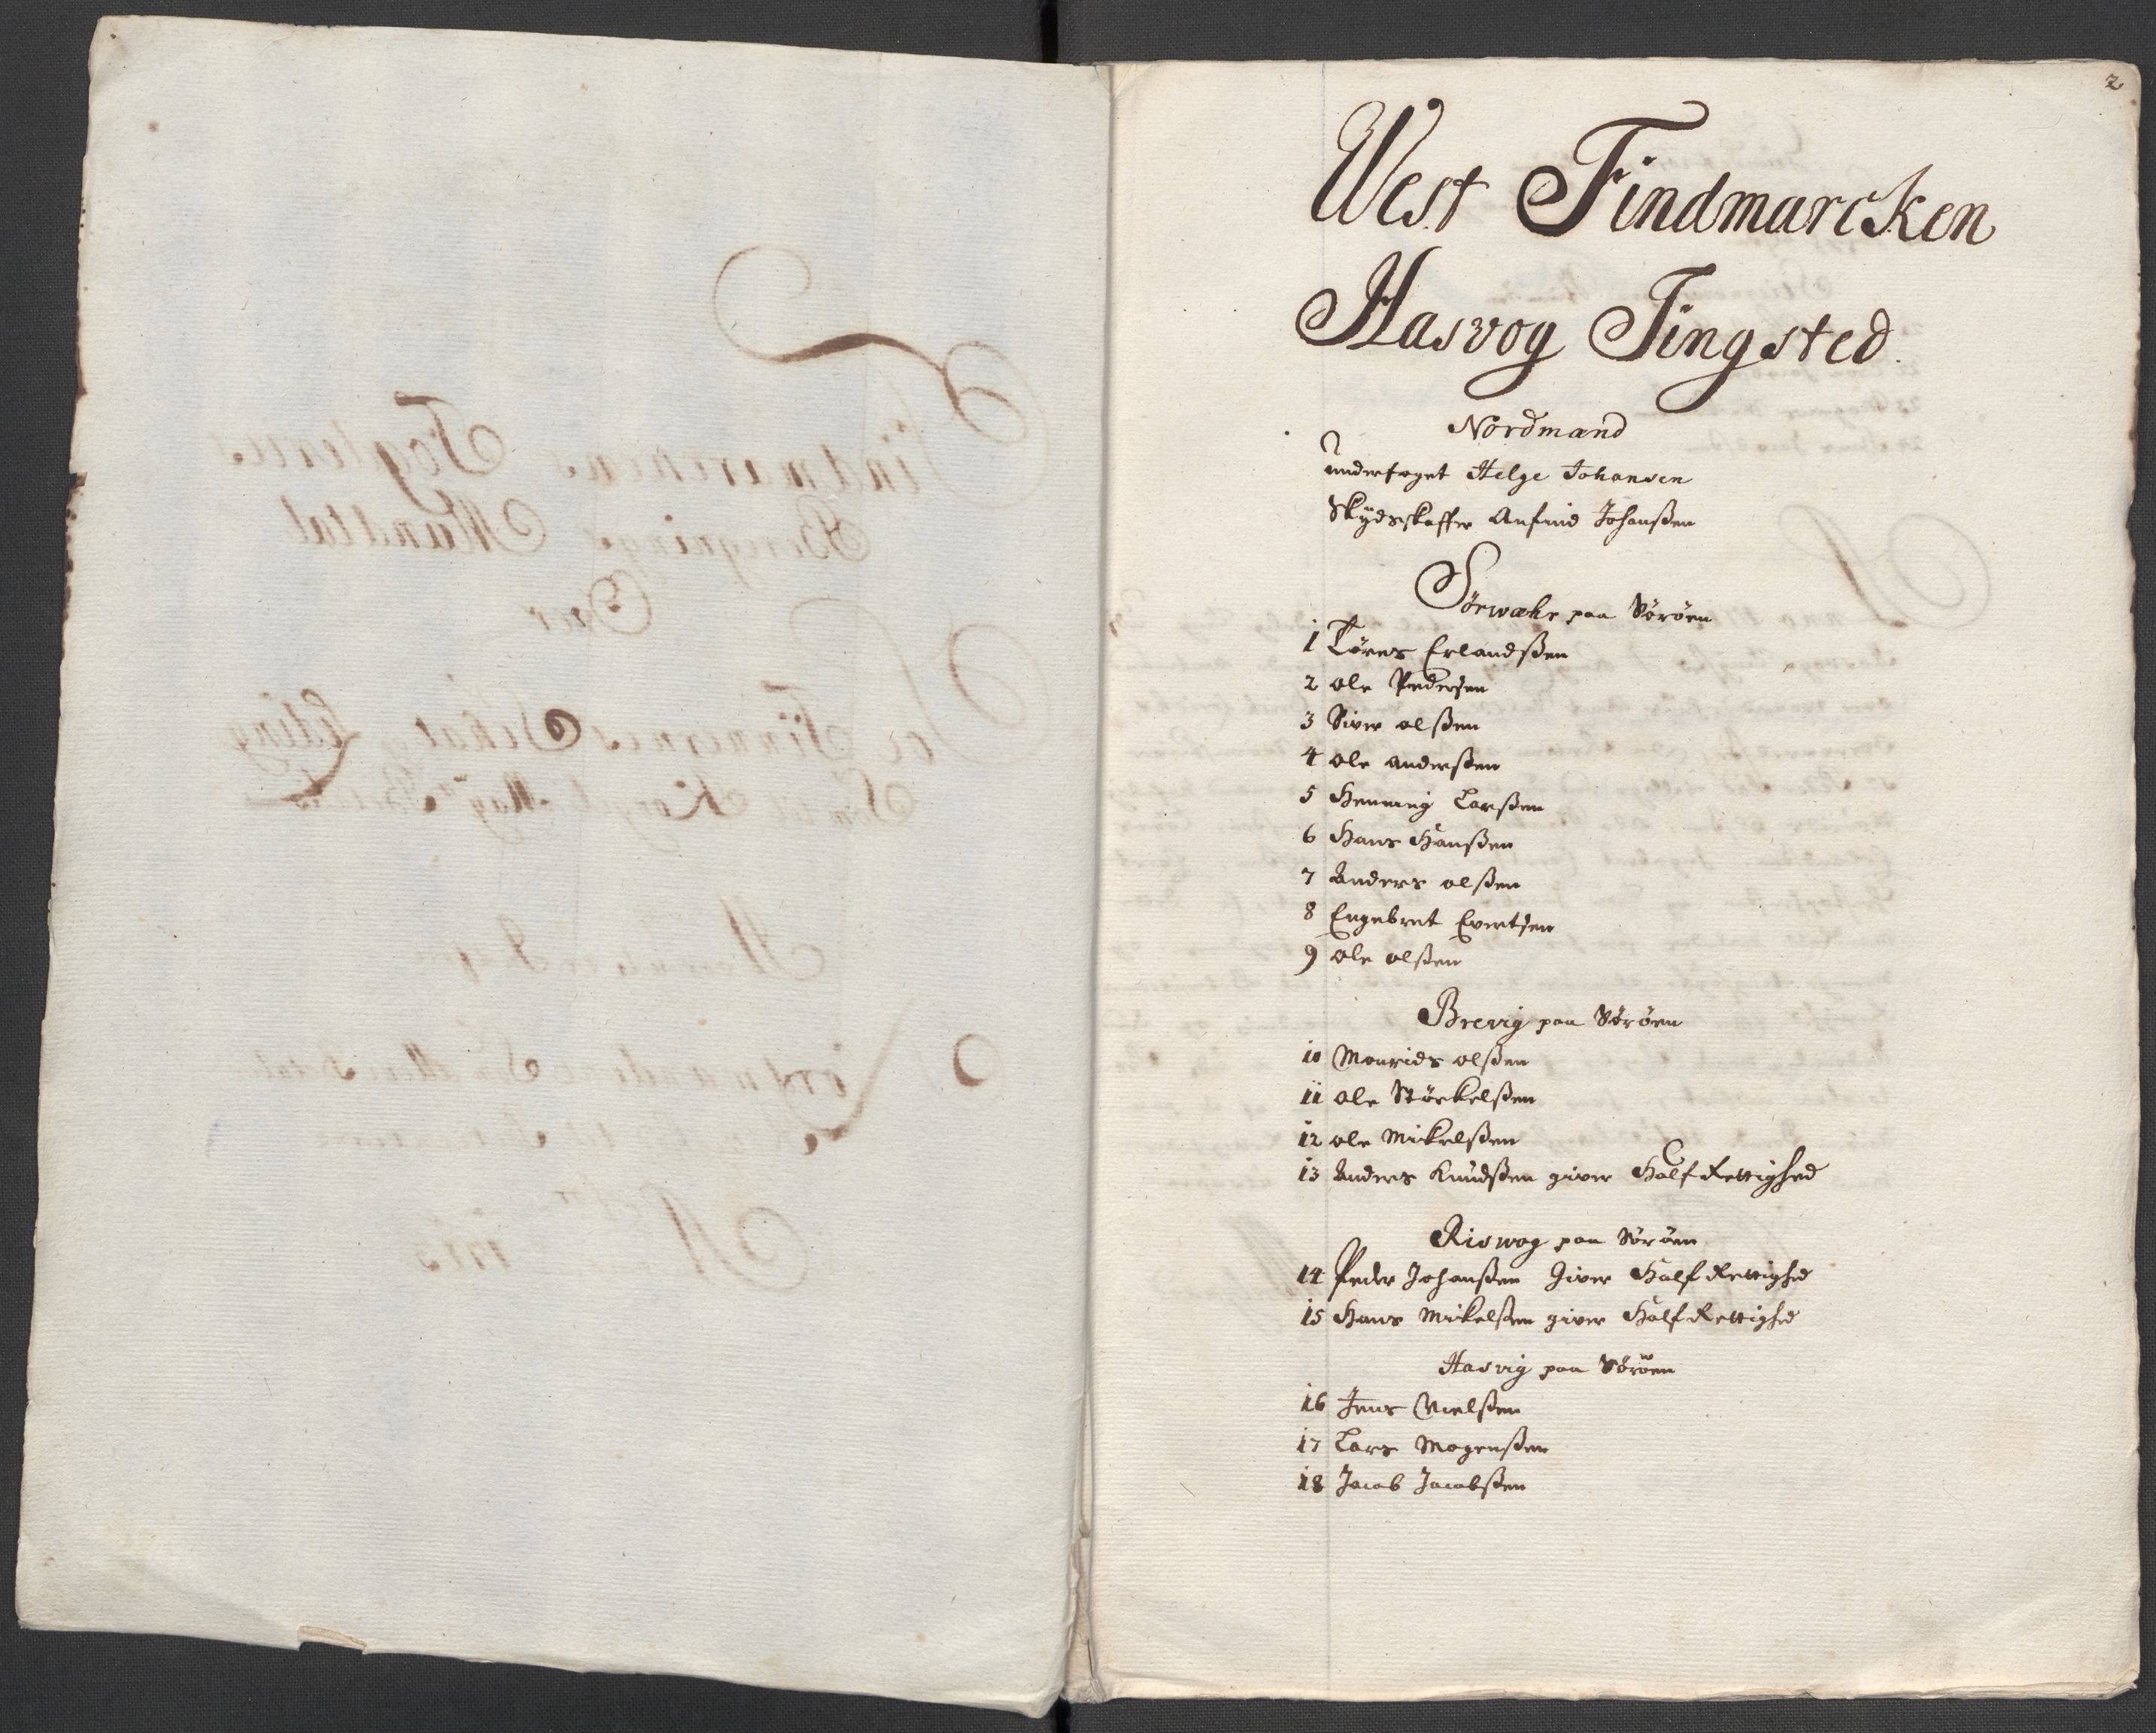 2
West Findmarcken
Hasvog Tingsted.
Nordmænd
underfoget Helge Johansen
Skydsskaffer Anfind Johanßen
Sørwæhr paa Sørøen
1 Tøres Erlandßen
2 Ole Pedersen
3 Siver olßen
4 Ole anderßen
5 Henning Larßen
6 Hans Hanßen
7 Anders olßen
8 Engebret Evertsen
9 Ole olßen
Brevig paa Sørøen
10 Mourids olßen
11 Ole Störkelßen
12 ole Mickelßen
13 Anders Knudßen giver Half Rettighed
Riswog paa Sørøen
14 Peder Johanßen Giver Half Rettighed
15 Hans Mickelßen giver Half Rettighed
Hasvig paa Sørøen
16 Jens Nielßen
17 Lars Mogenßen
18 Jacob Jacobßen